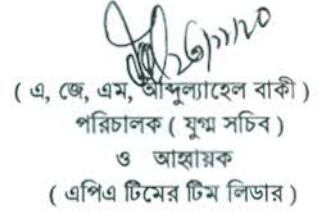 ( এ, জে, এম, আব্দুল্যাহেল বাকী )
পরিচালক ( যুগ্ম সচিব )
ও আহ্বায়ক
( এপিএ টিমের টিম লিডার )